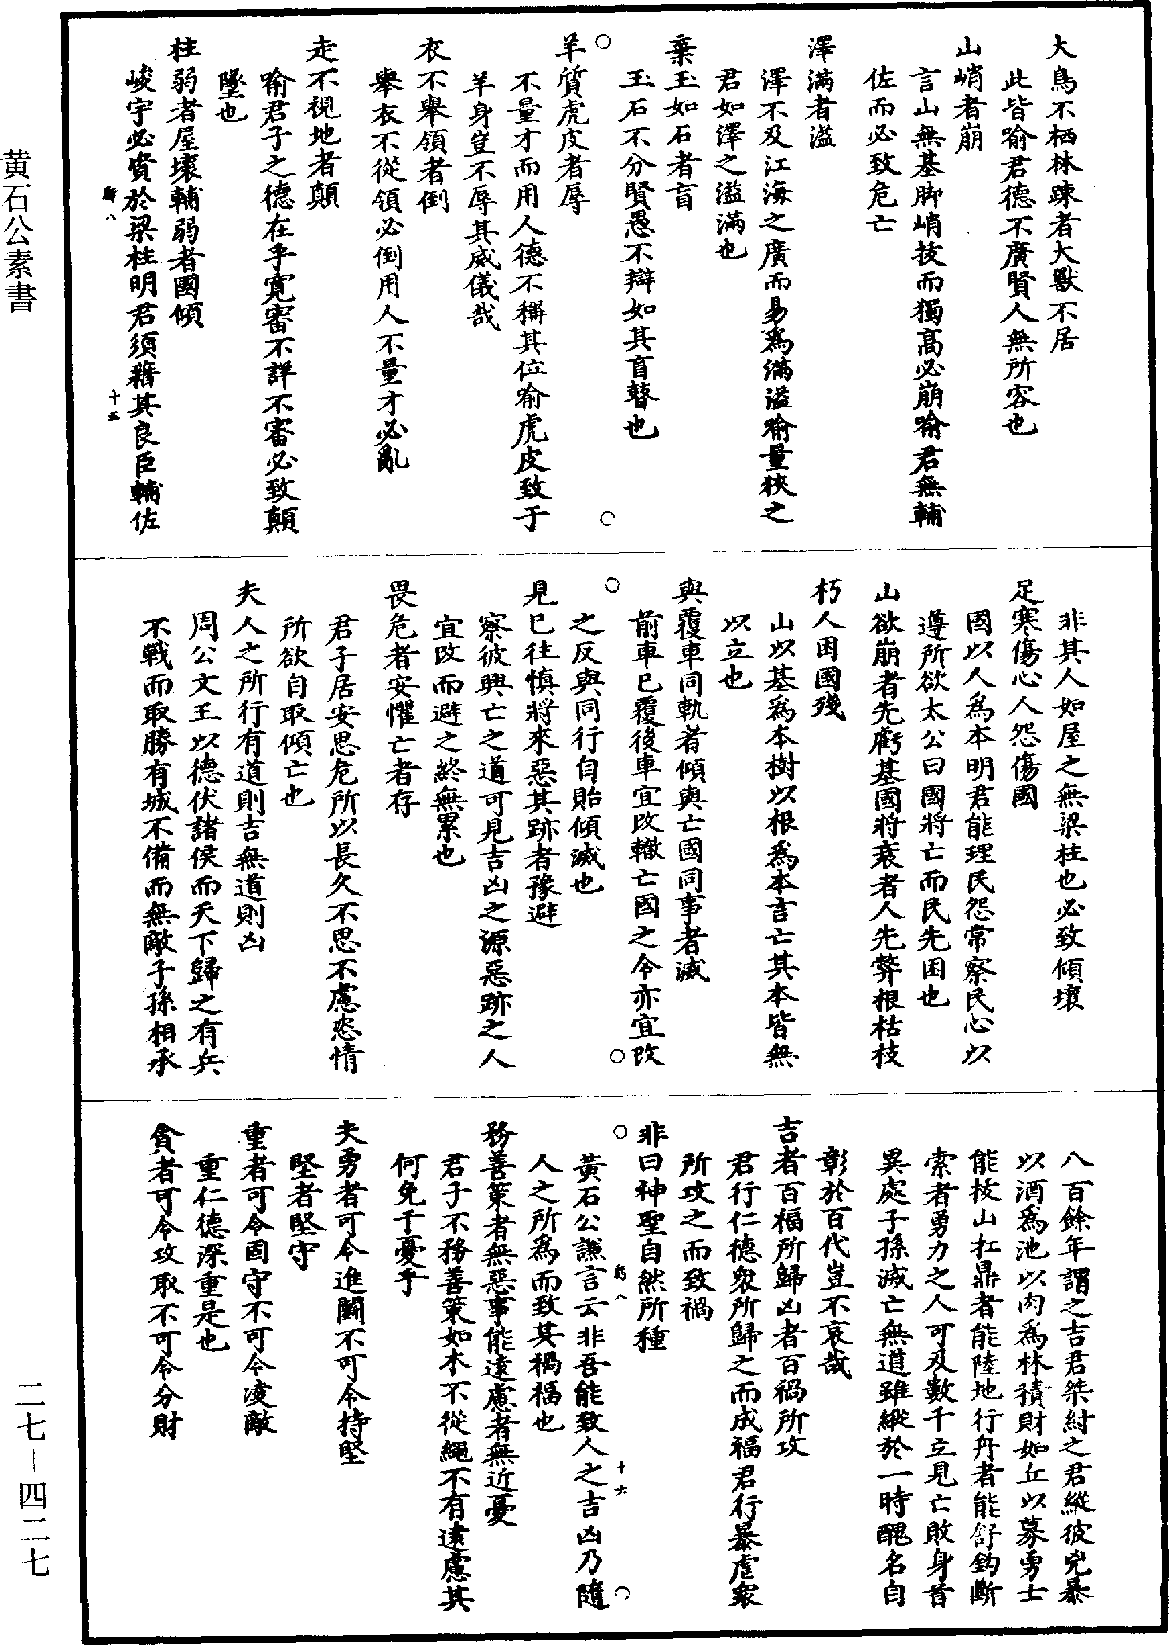 大鳥不栖林踈者大獸不居
此皆喻君德不廣賢人無所容也
山峭者崩
言山無基脚峭拔而獨高必崩喻君無輔
佐而必致危亡
澤滿者溢
澤不及江海之廣而易為滿溢喻量狹之
君如澤之溢滿也
棄玉如石者盲
玉石不分賢愚不辯如其盲瞽也
羊質虎皮者辱
不量才而用人德不稱其位喻虎皮致于
羊身豈不辱其威儀哉
衣不舉領者倒
舉衣不從領必倒用人不量才必亂
走不視地者顛
喻君子之德在乎寬審不詳不審必致顛
墜也
柱弱者屋壞輔弱者國傾
峻宇必資於梁柱明君須藉其良臣輔佐
非其人如屋之無梁柱也必致傾壞
足寒傷心人怨傷國
國以人為本明君能理民怨常察民心以
遵所欲太公曰國將亡而民先困也
山欲崩者先虧基國將衰者人先弊根枯枝
朽人困國殘
山以基為本樹以根為本言亡其本皆無
以立也
與覆車同軌者傾與亡國同事者滅
前車已覆後車宜改轍亡國之令亦宜改
之反與同行自貽傾滅也
見已往慎將來惡其跡者豫避
察彼興亡之道可見吉凶之源惡跡之人
宜改而避之終無累也
畏危者安懼亡者存
君子居安思危所以長久不思不慮恣情
所欲自取傾亡也
夫人之所行有道則吉無道則凶
周公文王以德伏諸侯而天下歸之有兵
不戰而取勝有城不備而無敵子孫相承
八百餘年謂之吉君桀紂之君縱彼兇暴
以酒為池以肉為林積財如丘以募勇士
能拔山扛鼎者能陸地行舟者能舒鈎斷
索者勇力之人可及數千立見亡敗身首
異處子孫滅亡無道雖縱於一時醜名自
彰於百代豈不哀哉
吉者百福所歸凶者百禍所攻
君行仁德眾所歸之而成福君行暴虐眾
所攻之而致禍
非曰神聖自然所種
黃石公謙言云非吾能致人之吉凶乃隨
人之所為而致其禍福也
務善策者無惡事能遠慮者無近憂
君子不務善策如木不從繩不有遠慮其
何免于憂乎
夫勇者可令進鬬不可令持堅
堅者堅守
重者可令固守不可令凌敵
重仁德深重是也
貪者可令攻取不可令分財
黄石公素書
二七－四二七
十五
十六